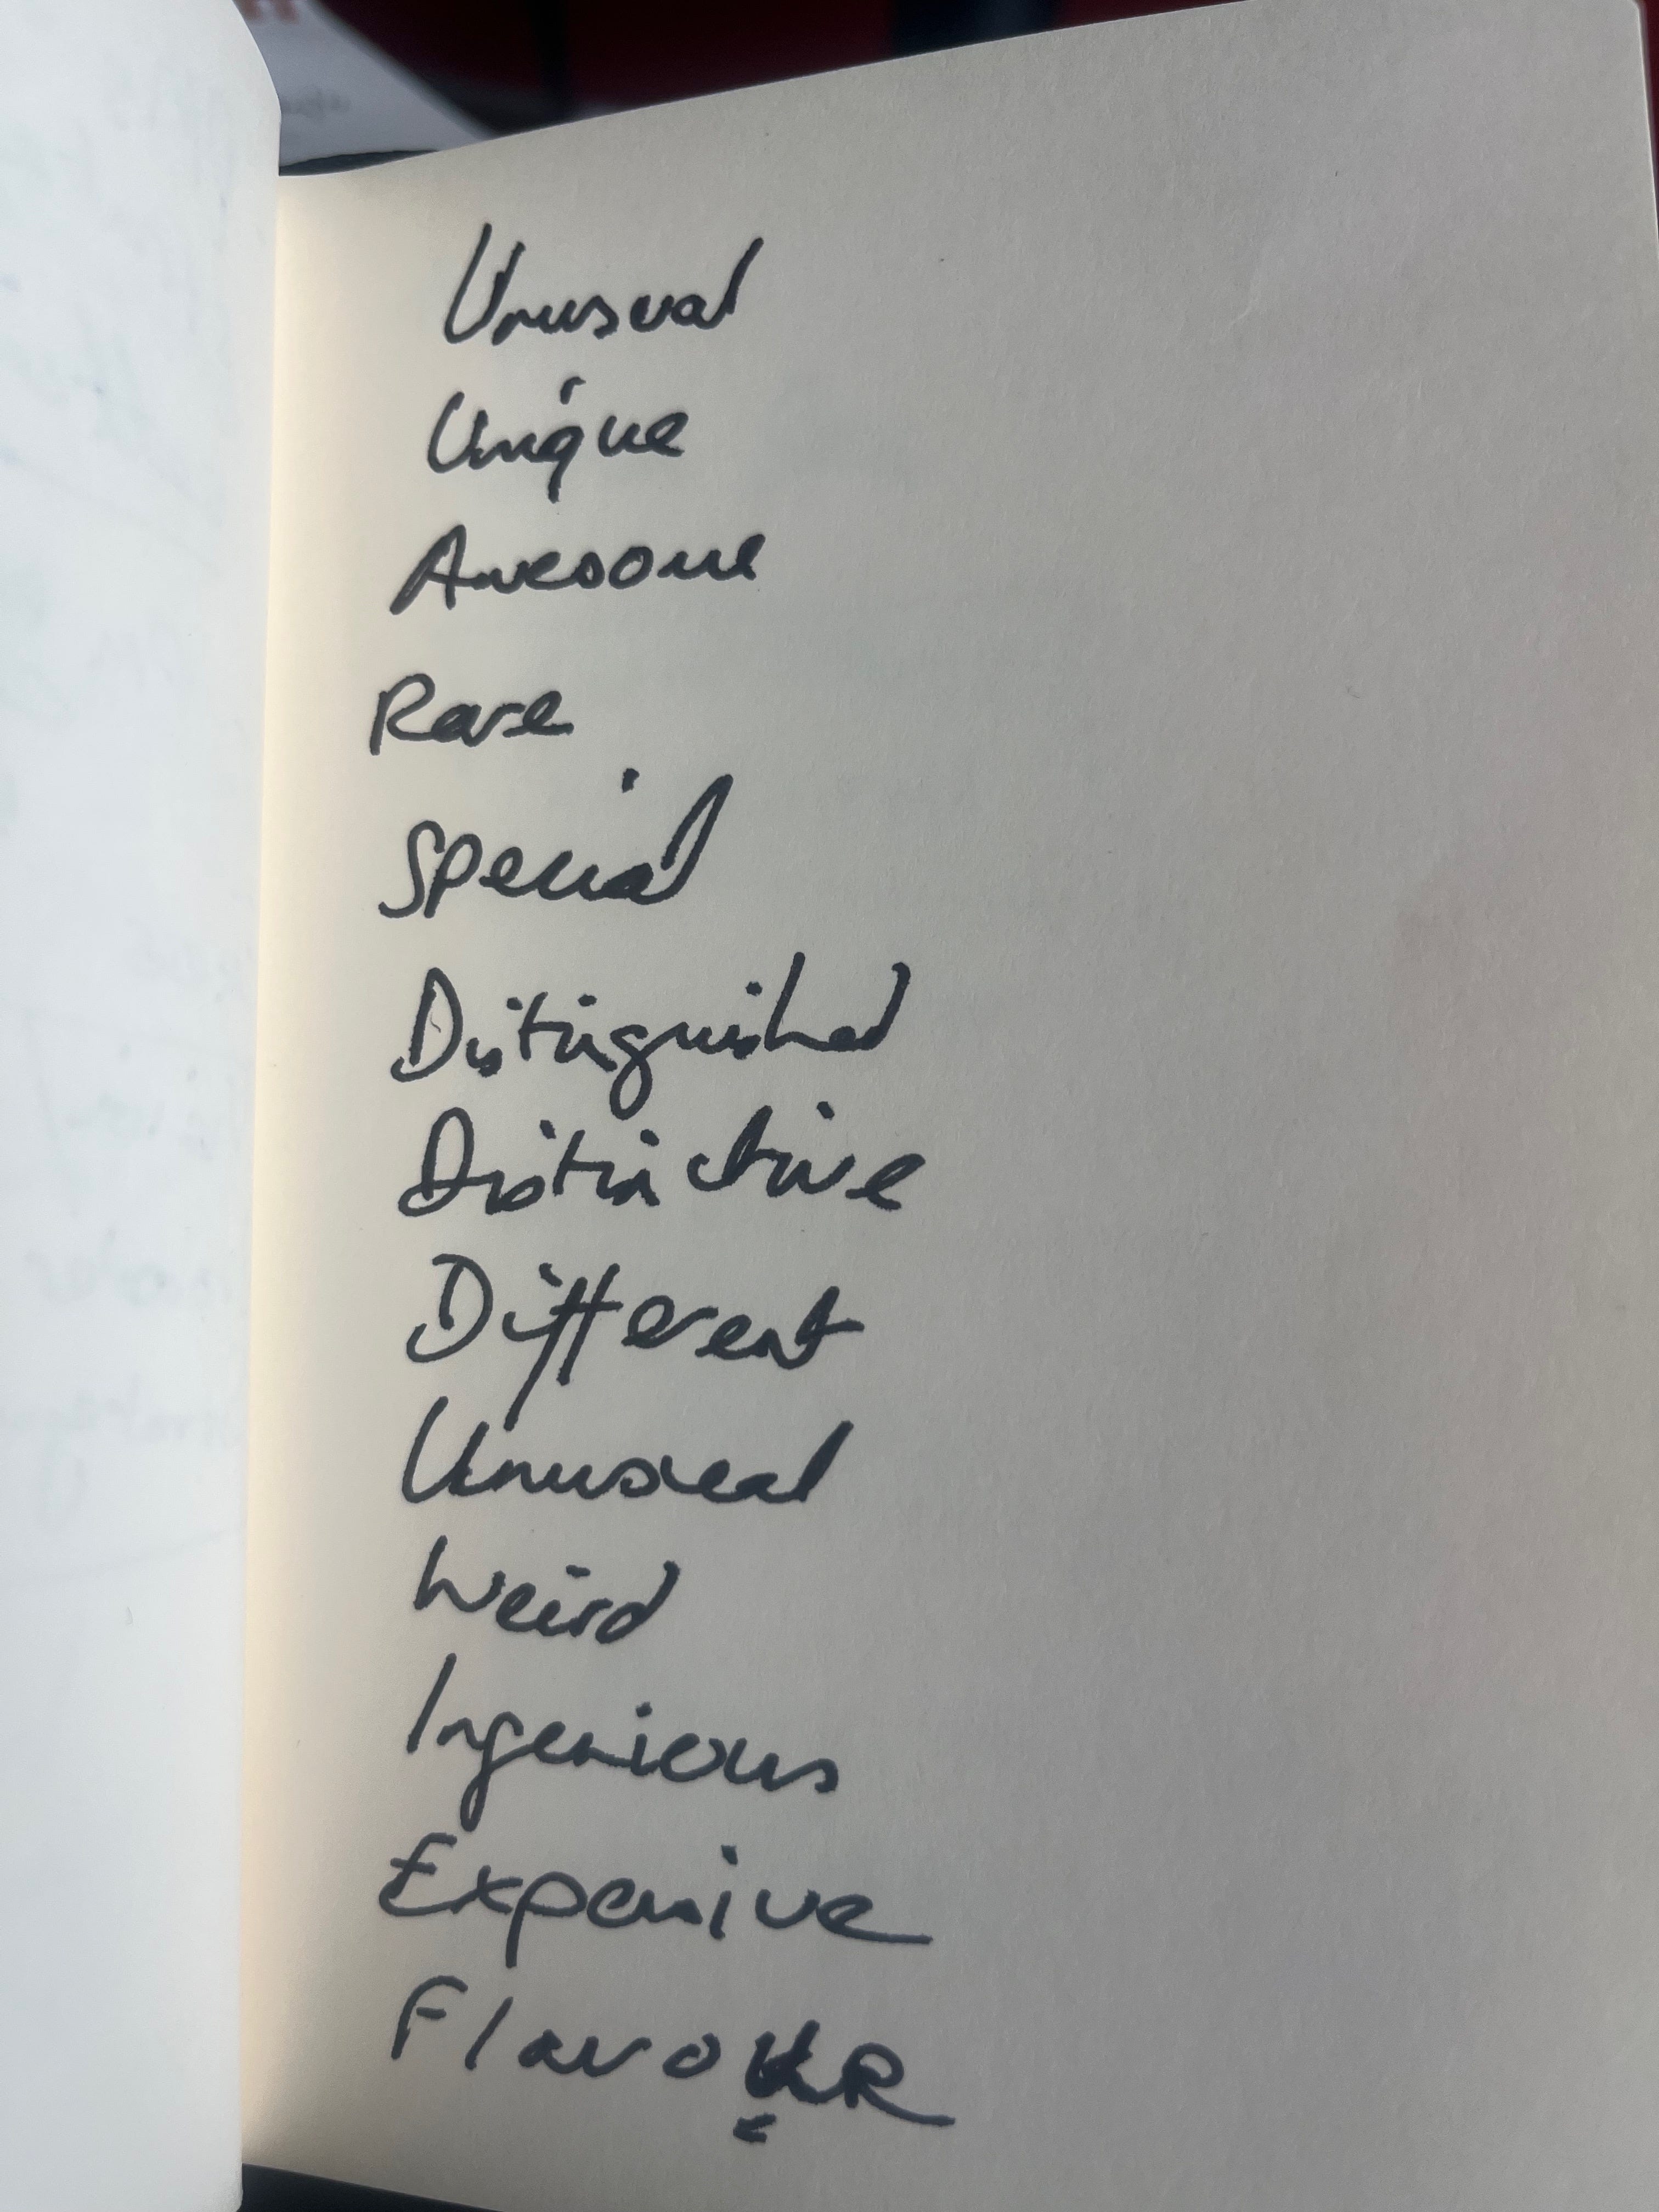 Unusual
Unique
Awesome
Rare
Special
Distinguished
Distinctive
Different
Unusual
Weird
Ingenious
Expensive
FlavoUR